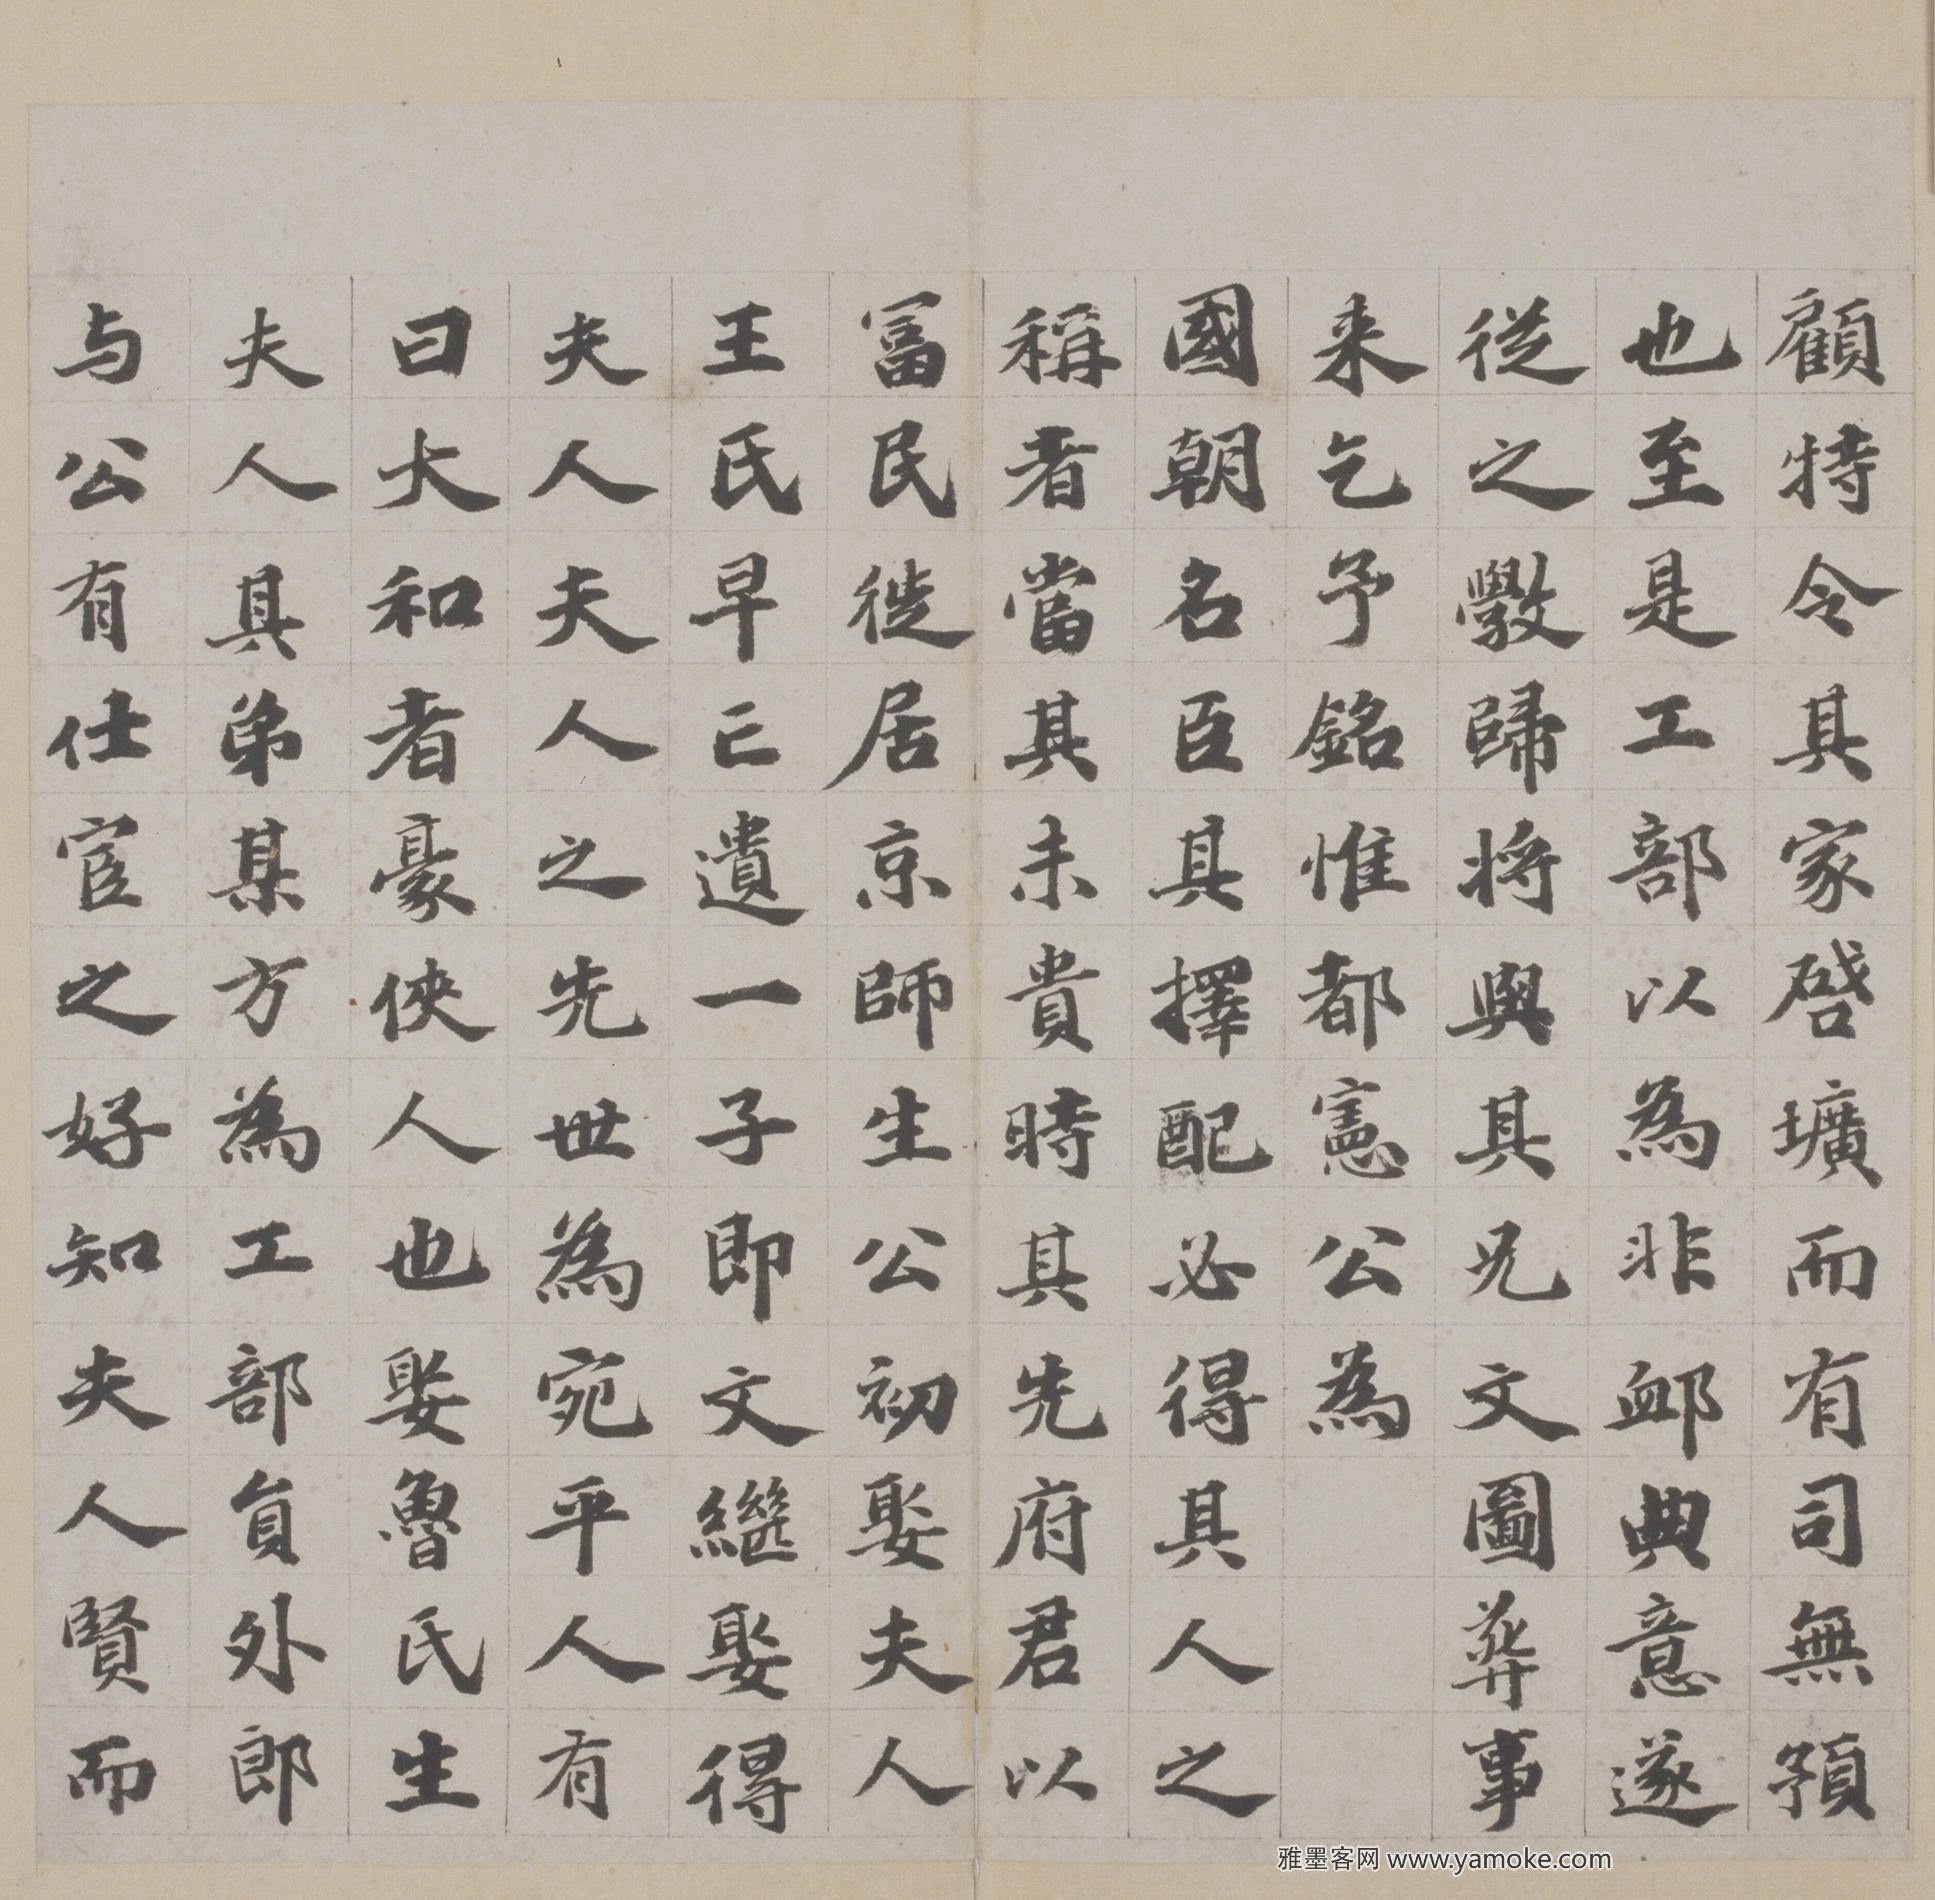 顧特令其家啓壙而有司無預
也至是工部以為非卹典意遂
從之斅歸将與其兄文圖葬事
来乞予銘惟都憲公為
國朝名臣其擇配必得其人之
稱者當其未貴時其先府君以
富民徙居京師生公初娶夫人
王氏早亡遺一子即文繼娶得
夫人夫人之先世為宛平人有
曰大和者豪俠人也娶魯氏生
夫人其弟某方為工部員外郎
与公有仕宦之好知夫人賢而
雅墨客网 www.yamoke.com